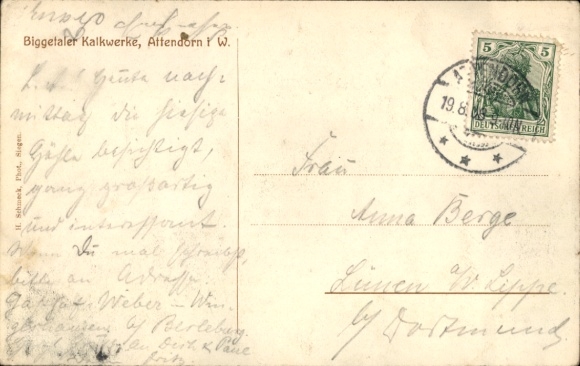 Biggetaler Kalkwerke, Attendorn i W.
H. Schmeck, Phot., Siegen.
L. A! Heute nach-
mittag die hiesige
Höhle besichtigt,
ganz großartig
und interessant.
Wenn Du mal schreibst,
bitte an Adresse
Gasthof Weber - Win-
b/ Berleburg.
an Dich &
Fritz
5 5
DEUTSCHES REICH
ATTENDORN
19.8.
Frau
Anna Berge
Lünen a/d Lippe.
b/ Dortmund